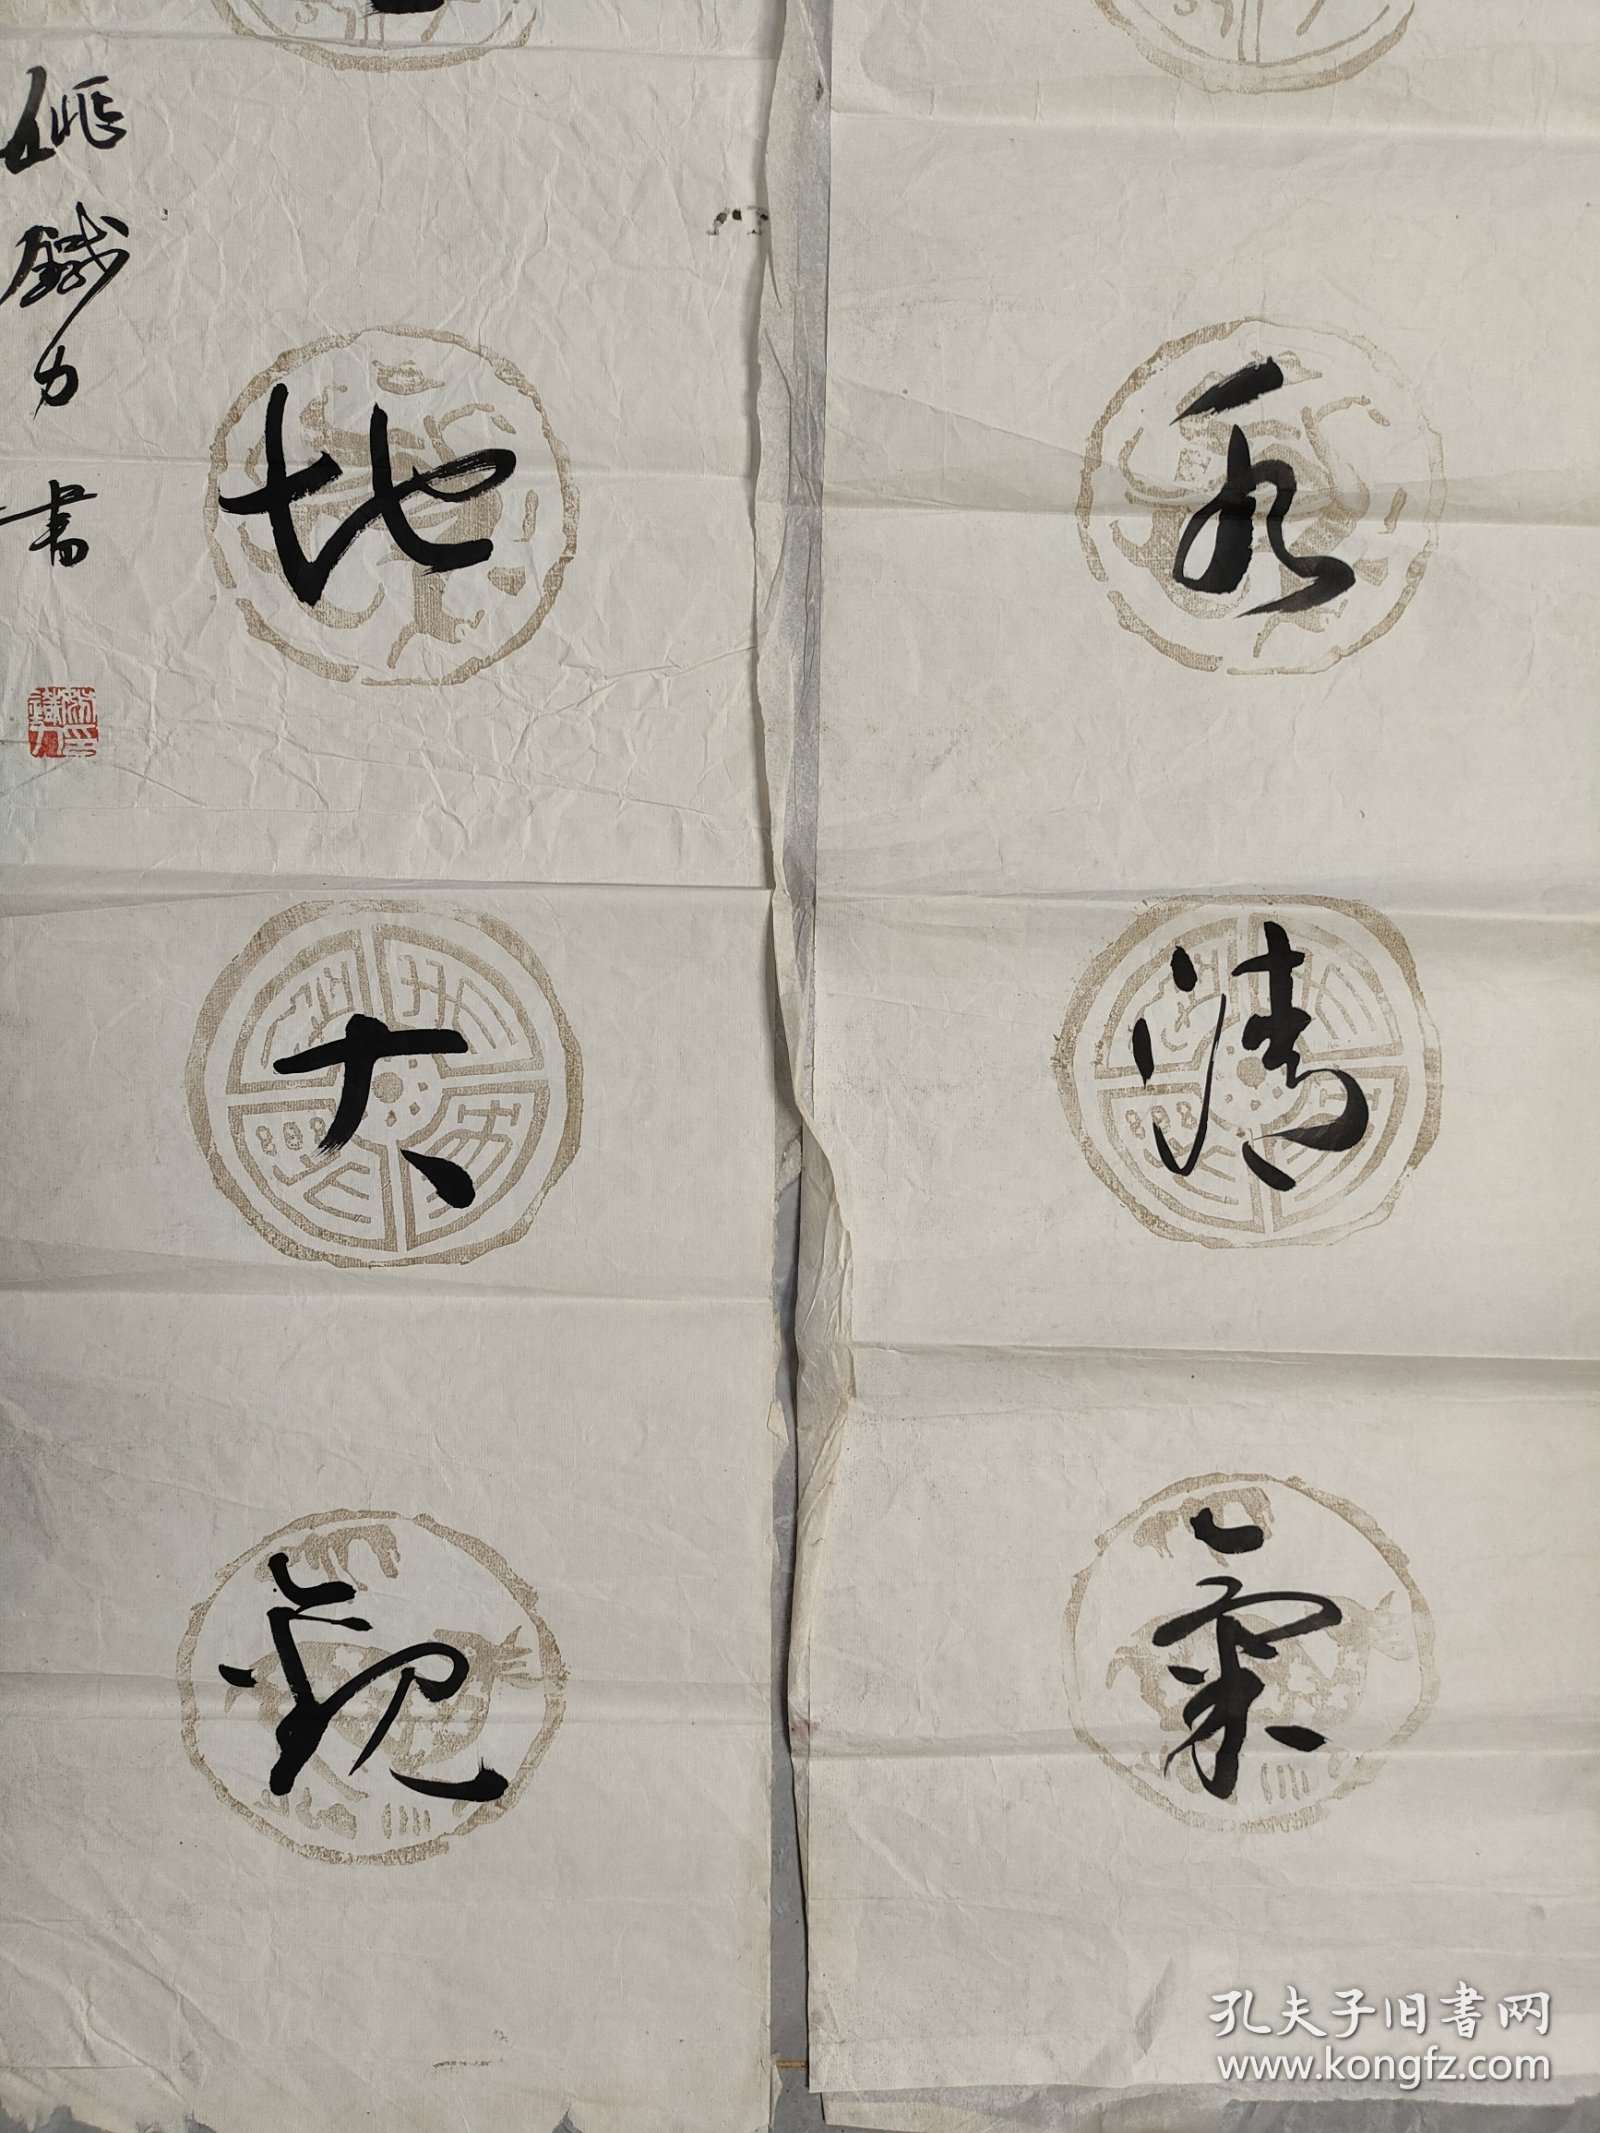 水清氣
地大觀
姚鐵力書
孔夫子旧書网
www.kongfz.com